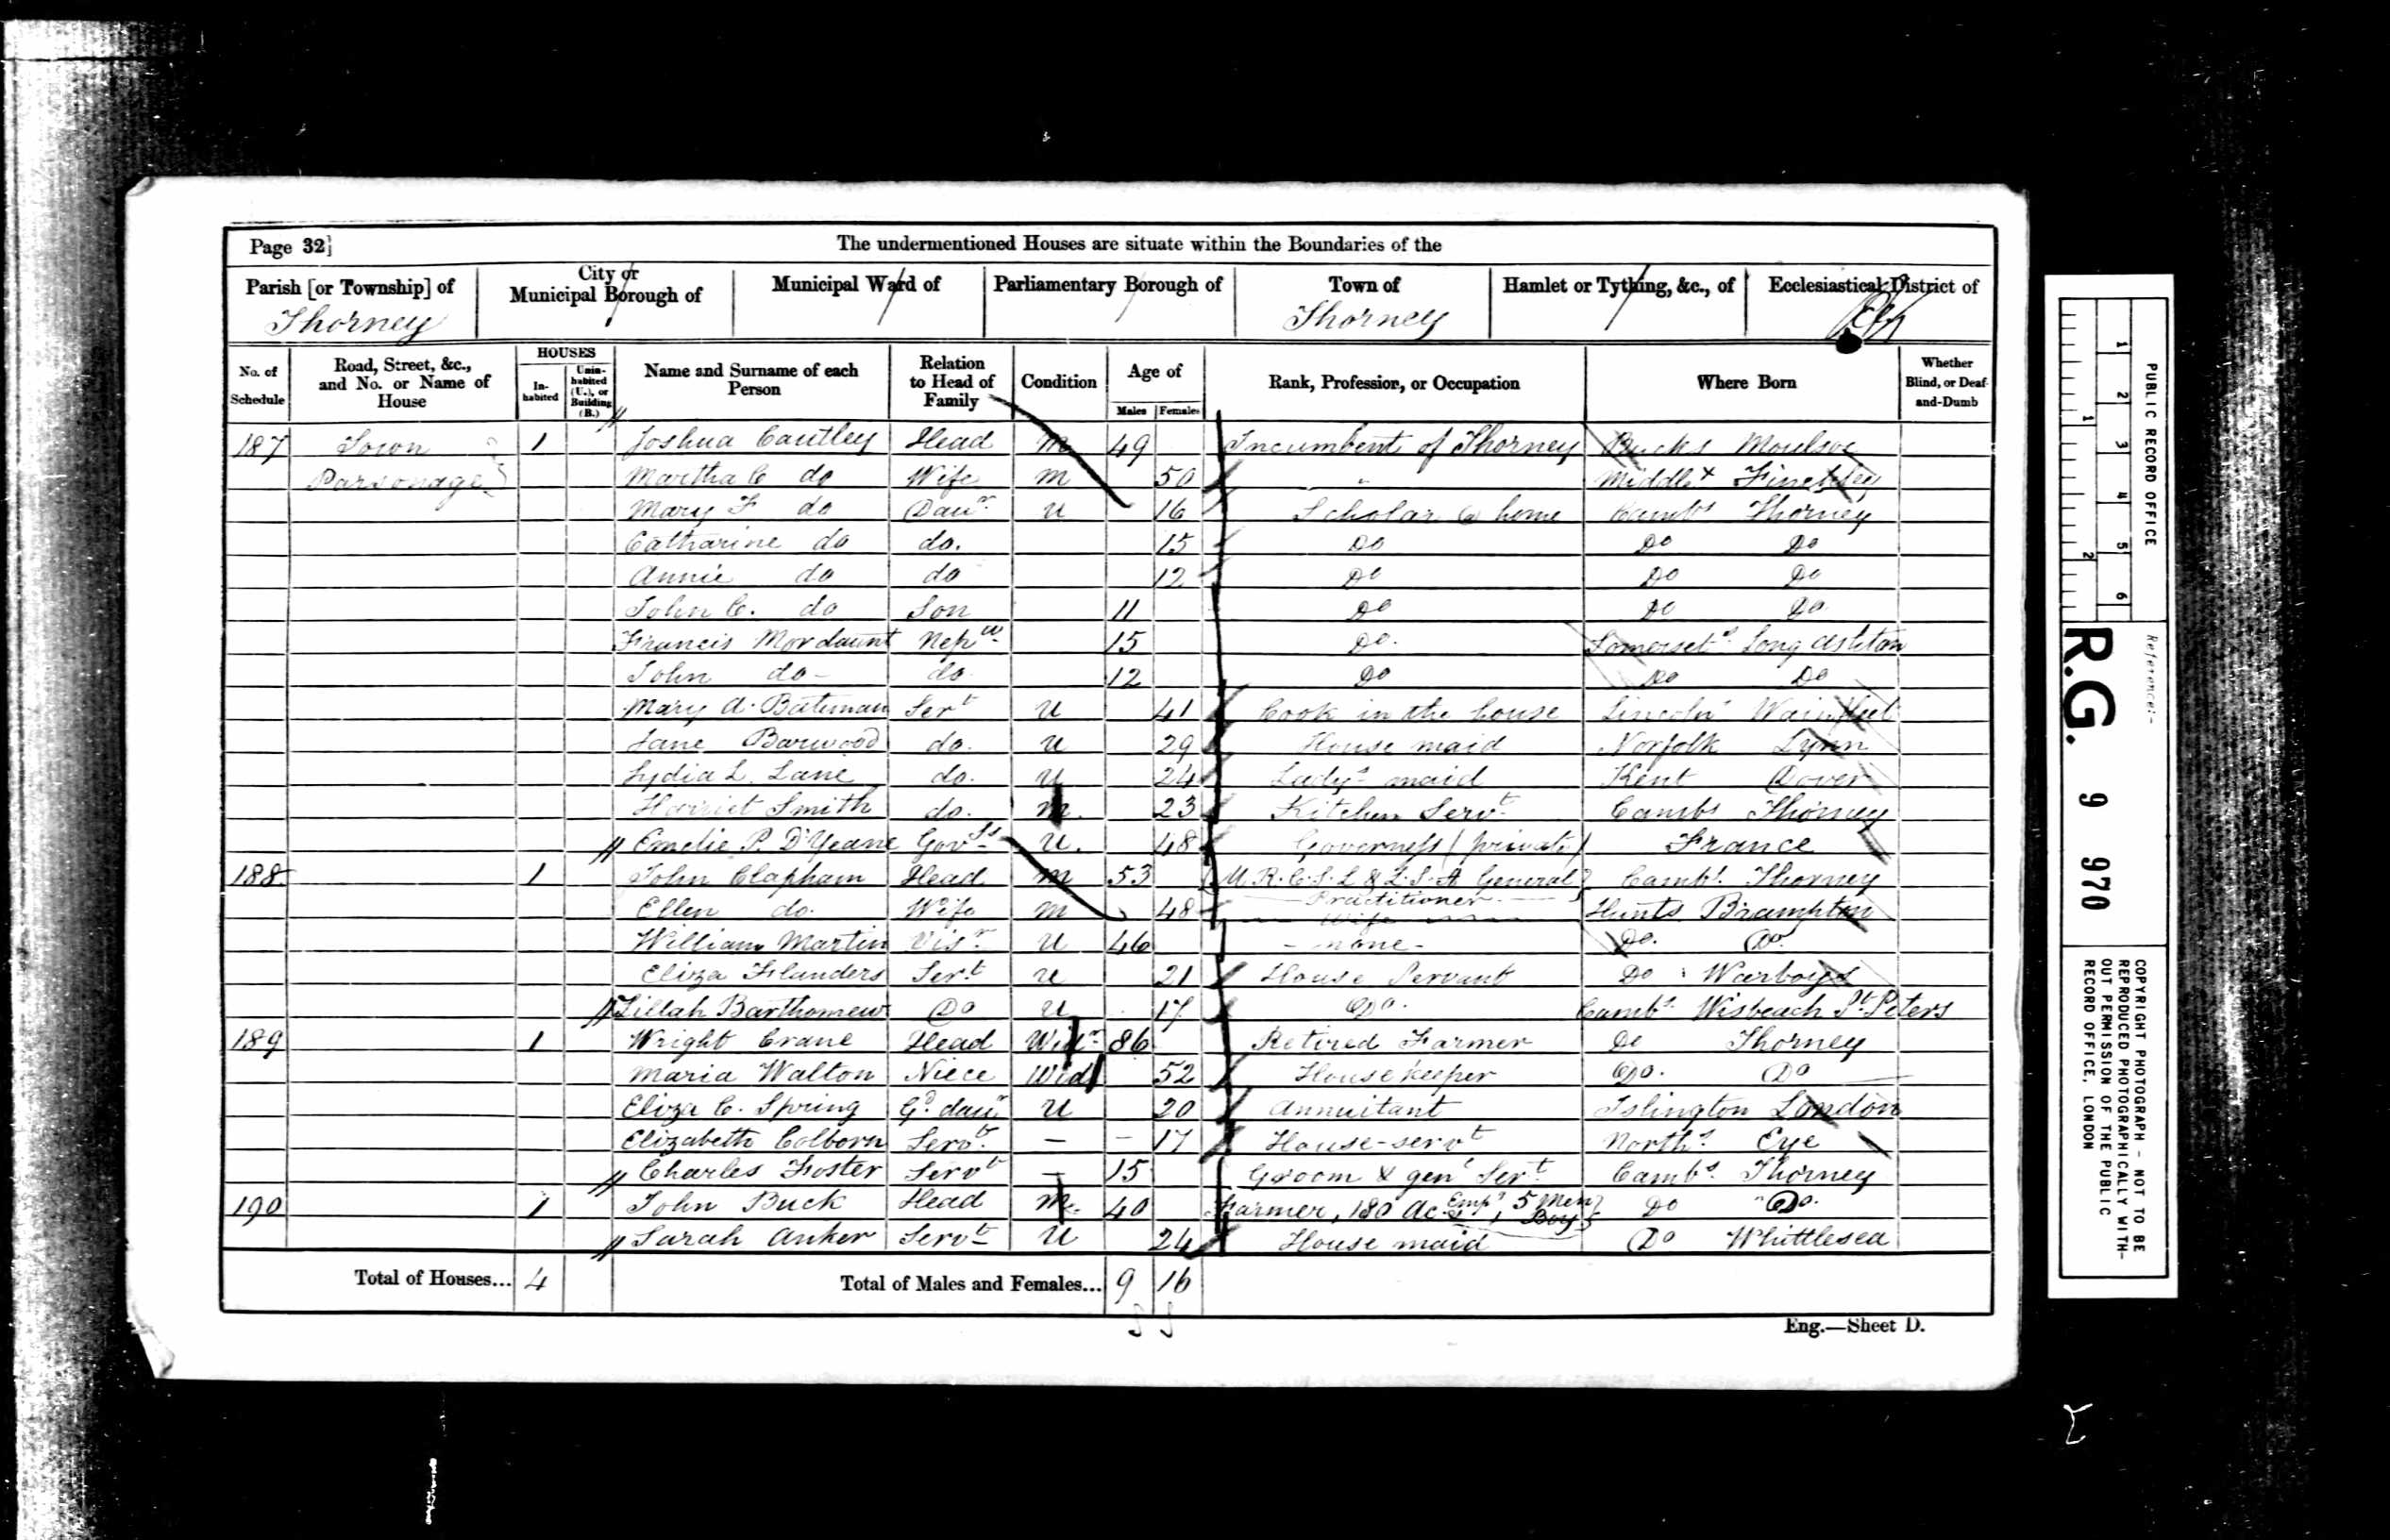 Page 32] The undermentioned Houses are situate within the Boundaries of the
Parish [or Township] of City or Municipal Borough of Municipal Ward of Parliamentary Borough of Town of Hamlet or Tything, &c., of Ecclesiastical District of
Thorney Thorney
No. of Schedule Road, Street, &c., and No. or Name of House HOUSES In-habited Unin-habited (U.), or Building (B.) Name and Surname of each Person Relation to Head of Family Condition Age of Males Females Rank, Profession, or Occupation Where Born Whether Blind, or Deaf-and-Dumb
187 Town 1 Joshua Cautley Head M 49 Incumbent of Thorney Bucks Moulsoe
Parsonage Martha C do Wife M 50 Middlx Finchley
Mary F do Daur U 16 Scholar @ home Cambs Thorney
Catharine do do. 15 Do Do Do
Annie do do 12 Do Do Do
John C. do Son 11 Do Do Do
Francis Mordaunt Nepw 15 Do. Somersets Long Ashton
John do - do 12 Do Do Do
Mary A. Bateman Sert U 41 Cook in the house Lincoln Wainfleet
Jane Barwood do. U 29 House maid Norfolk Lynn
Lydia L. Lane do. U 24 Ladys maid Kent Dover
Harriet Smith do. M 23 Kitchen Servt Cambs Thorney
Emelie P. D'Yeane Govss U. 48 Governess (private) France
188 1 John Clapham Head M 53 M.R.C.S.L & L.S.A General Practitioner Cambs. Thorney
Ellen do. Wife M 48 Wife Hunts Brampton
William Martin Visr U 46 - none - Do. Do.
Eliza Flanders Sert U 21 House Servant Do Warboys
Zillah Barthomew Do U 17 Do. Cambs. Wisbeach St. Peters
189 1 Wright Crane Head Widr 86 Retired Farmer Do Thorney
Maria Walton Niece Wid 52 Housekeeper Do. Do
Eliza C. Spring Gd. daur U 20 Annuitant Islington London
Elizabeth Colborn Servt. — - 17 House-servt Norths. Eye
Charles Foster Servt — 15 Groom & genl Sert Cambs. Thorney
190 1 John Buck Head M 40 Farmer, 180 Ac. Emps, 5 Men Boys Do Do.
Sarah Anker Servt U 24 House maid Do Whittlesea
Total of Houses... 4 Total of Males and Females... 9 16
Eng.—Sheet D.
PUBLIC RECORD OFFICE
1 2 3 4 5 6
1 2
Reference:-
R.G. 9 970
COPYRIGHT PHOTOGRAPH - NOT TO BE
REPRODUCED PHOTOGRAPHICALLY WITH-
OUT PERMISSION OF THE PUBLIC
RECORD OFFICE, LONDON